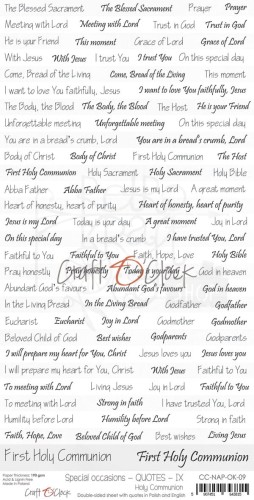 The Blessed Sacrament The Blessed Sacrament Prayer Prayer
Meeting with Lord Meeting with Lord Trust in God Trust in God
He is your Friend This moment Grace of Lord Grace of Lord
With Jesus With Jesus I trust You I trust You On this special day
Come, Bread of the Living Come, Bread of the Living This moment
I want to love You faithfully, Jesus I want to love You faithfully, Jesus
The Body, the Blood The Body, the Blood The Host He is your Friend
Unforgettable meeting Unforgettable meeting On this special day
You are in a bread's crumb, Lord You are in a bread's crumb, Lord
Body of Christ Body of Christ First Holy Communion The Host
First Holy Communion Holy Sacrament Holy Sacrament Holy Bible
Abba Father Abba Father Jesus is my Lord A great moment
Heart of honesty, heart of purity Heart of honesty, heart of purity
Jesus is my Lord Today is your day A great moment Joy in Lord
On this special day In a bread's crumb I have trusted You, Lord
Faithful to You Faithful to You Faith, Hope, Love Holy Bible
Pray honestly Pray honestly Today is your day God in heaven
Abundant God's favours Abundant God's favours God is in heaven
In the Living Bread In the Living Bread Godfather Godfather
Eucharist Eucharist Joy in Lord Godmother Godmother
Beloved Child of God Best wishes Godparents Godparents
I will prepare my heart for You, Christ Jesus loves you Jesus loves you
I will prepare my heart for You, Christ With Jesus Faithful to You
To meeting with Lord Living Jesus Joy in Lord Faithful to You
To meeting with Lord Strong in faith I have trusted You, Lord
Humility before Lord Humility before Lord Strong in faith
Faith, Hope, Love Beloved Child of God Best wishes Living Jesus
First Holy Communion First Holy Communion
Craft O'Clock
Paper thickness: 190 gsm
Acid & Lignin Free
Made in Poland
Craft O'Clock
Special occasions – QUOTES – IX
Holy Communion
Double-sided sheet with quotes in Polish and English
CC-NAP-OK-09